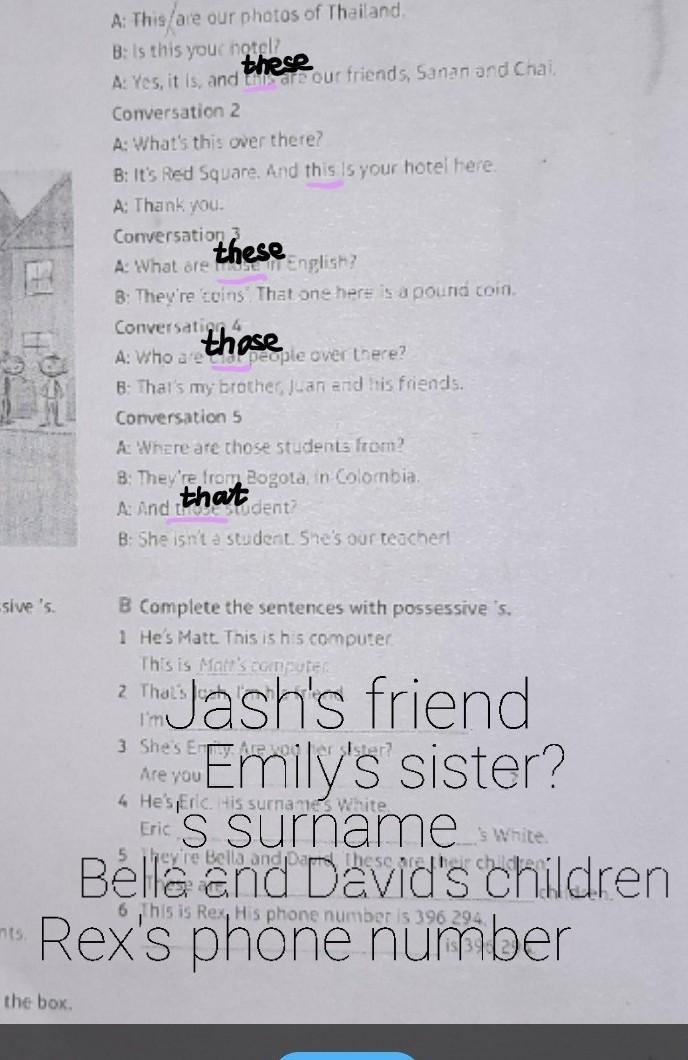 A: This/are our photos of Thailand.
B: Is this your hotel?
these
A: Yes, it is, and this are our friends, Sanan and Chai.
Conversation 2
A: What's this over there?
B: It's Red Square. And this is your hotel here.
A: Thank you.
Conversation 3
these
A: What are those in English?
B: They're 'coins'. That one here is a pound coin.
Conversation 4
those
A: Who are that people over there?
B: That's my brother, Juan and his friends.
Conversation 5
A: Where are those students from?
B: They're from Bogota, in Colombia.
that
A: And those student?
B: She isn't a student. She's our teacher!
sive 's.
B Complete the sentences with possessive 's.
1 He's Matt. This is his computer.
This is Matt's computer.
2 That's Josh. I'm his friend.
I'm Jash's friend
3 She's Emily. Are you her sister?
Are you Emily's sister?
4 He's Eric. His surname's White.
Eric 's surname 's White.
5 They're Bella and David. These are their children.
These are Bella and David's children children.
6 This is Rex. His phone number is 396 294.
nts.
Rex's phone number is 396 294.
the box.